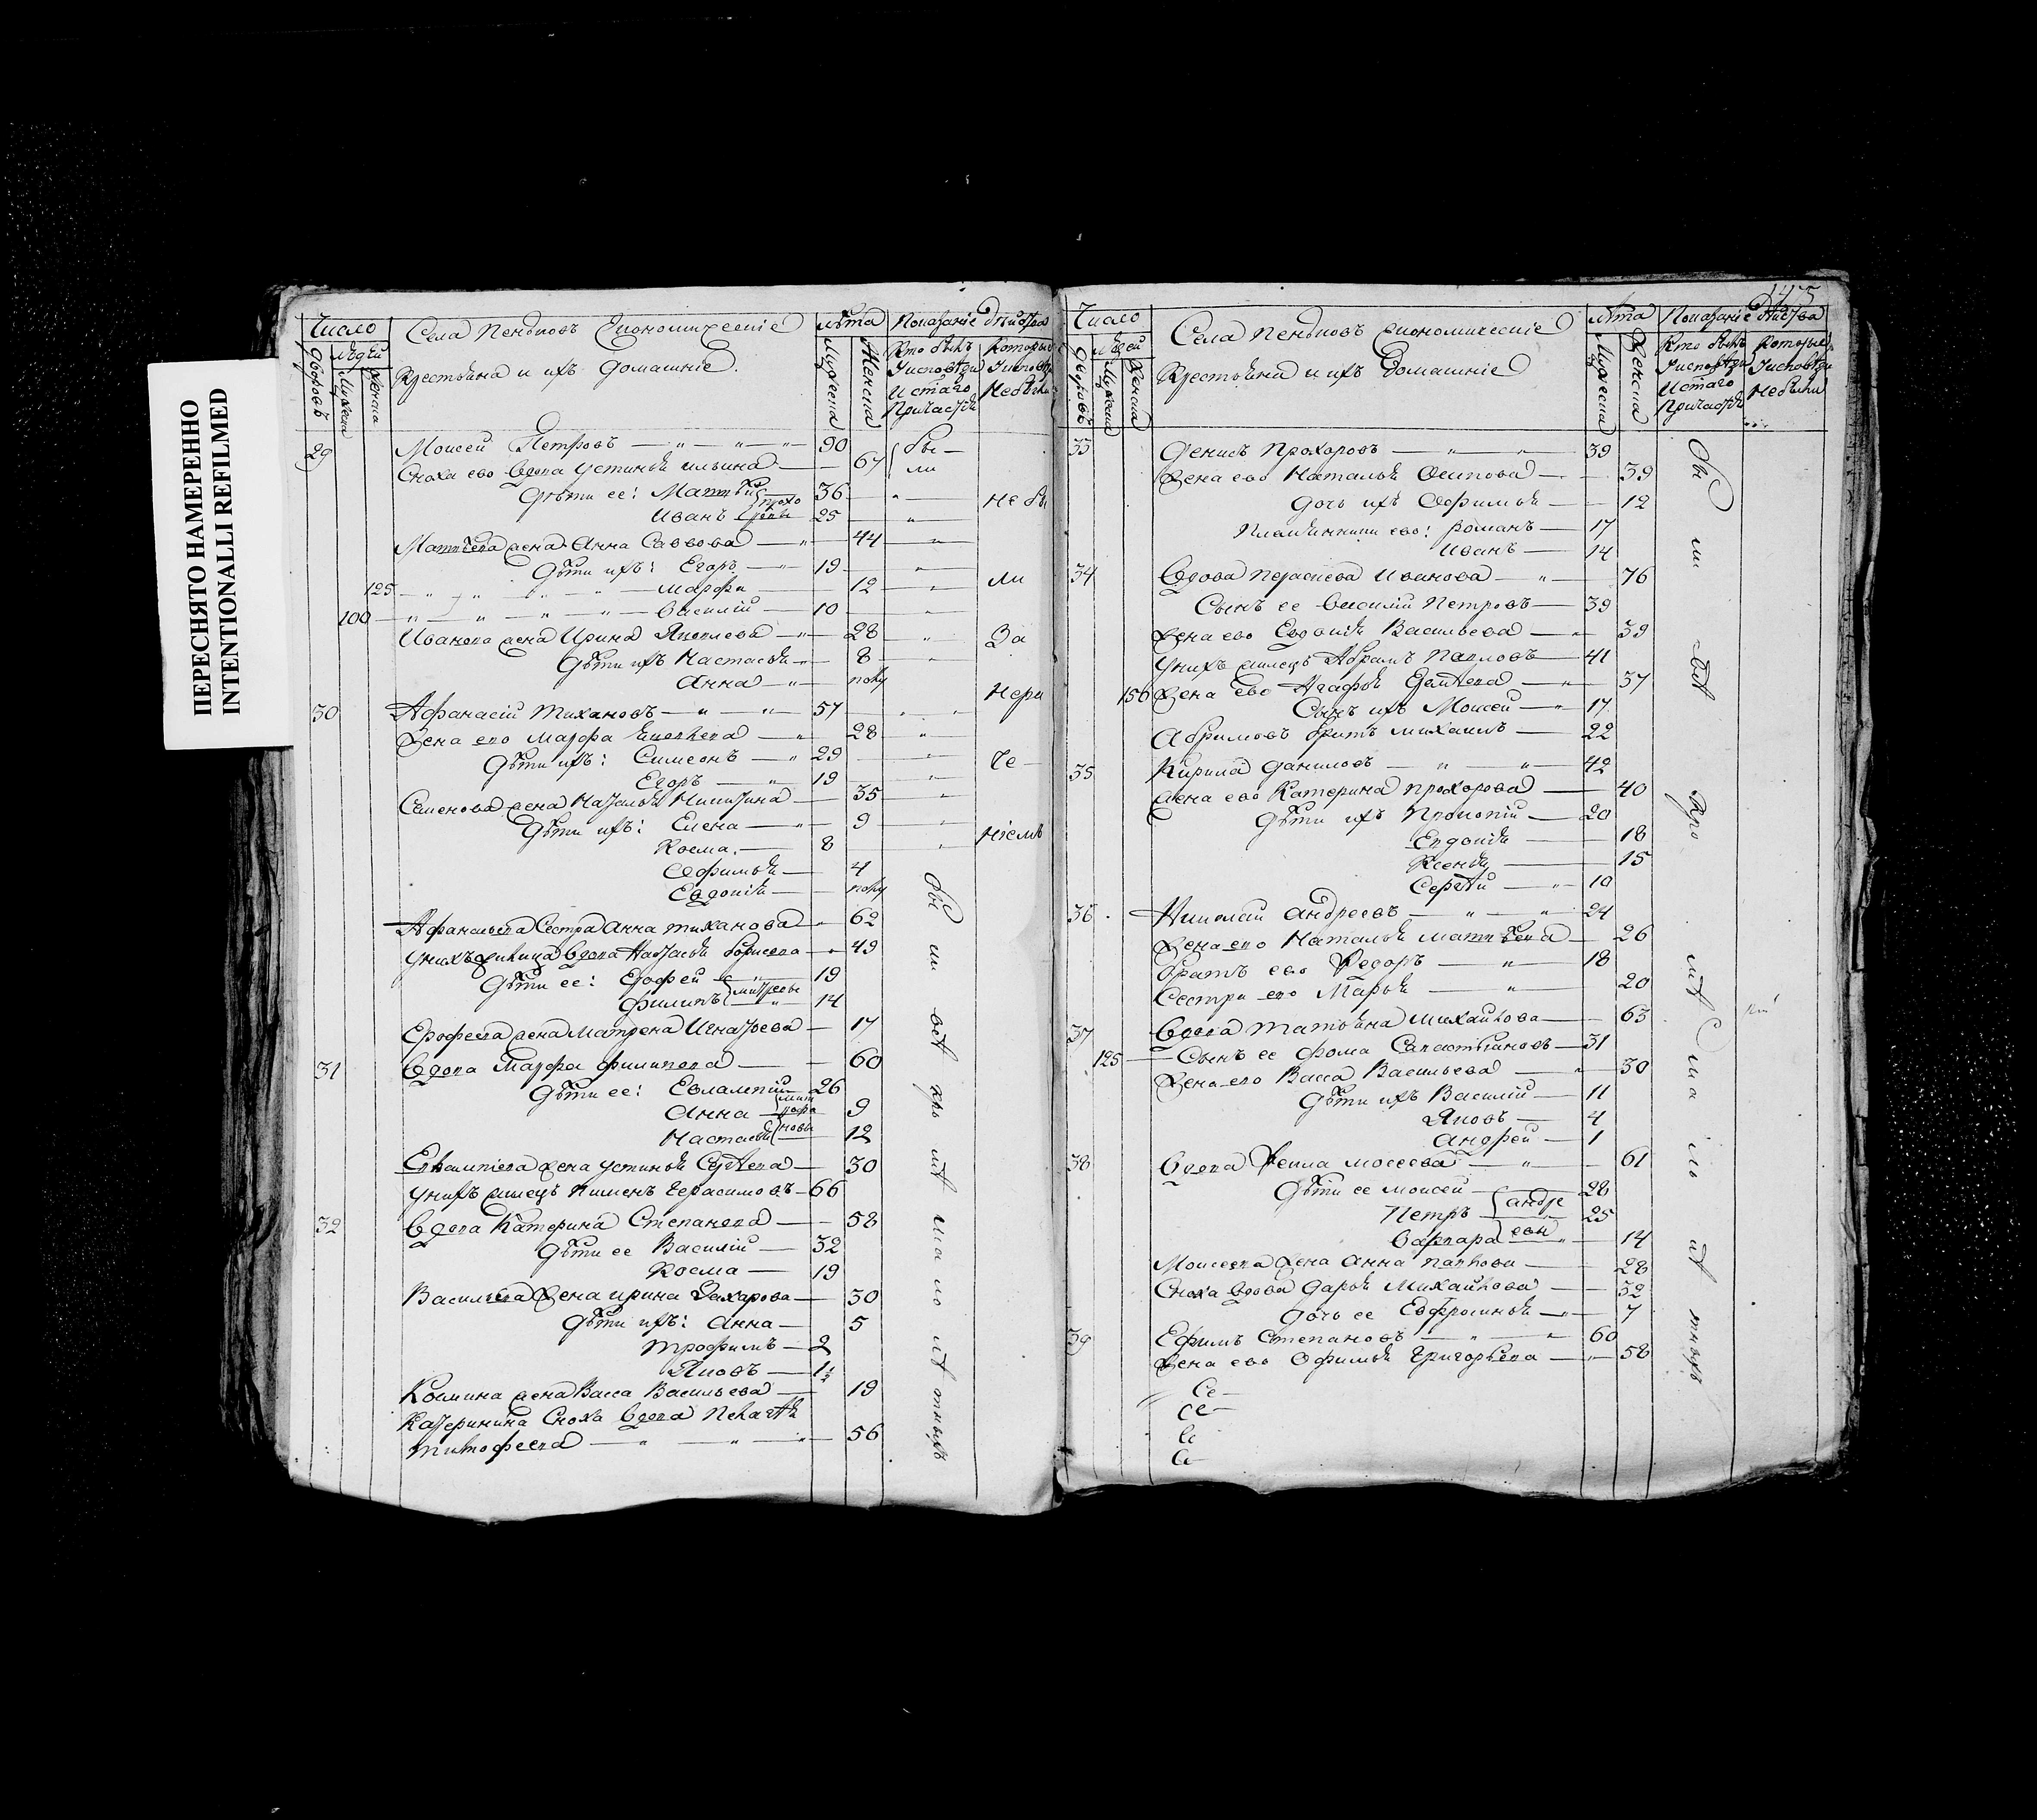 ПЕРЕСНЯТО НАМЕРЕННО
INTENTIONALLI REFILMED
Число
Села Пеньковъ Економическіе
Крестьяна и ихъ домашніе.
лѣта
Показаніе дѣйства
дворовъ
людей
Мужеска
Женска
Мужеска
Женска
Кто былъ
У исповѣди
И стаго
Причастія
Которые
У исповѣди
Не были
29 Моисей Петровъ 90
Сноха ево вдова Устинья Ильина 67
бы-
ли
дѣти ее: Матвѣй 36
Иванъ 25
не бы
Матвѣева жена Анна Саввова 44
дѣти ихъ: Егоръ 19
125 Марфа 12
ли
100 Василій 10
Иванова жена Ирина Яковлева 28
За
дѣти ихъ Настасья 8
Анна полу
Нера
30 Афанасій Тихановъ 57
Жена ево Марфа 28
дѣти ихъ: Симеонъ 29
че-
Егоръ 19
Семенова жена Наталья Никитина 35
дѣти ихъ: Елена 9
ніемъ
Косма 8
Евфимья 4
Евдокія полу
Афанасьева Сестра Анна Тиханова 62
У нихъ жилица вдова Настасья Борисова 49
дѣти ее: Ерофей 19
Филипъ 14
Ерофеева жена Матрена Игнатьева 17
31 Вдова Марфа Филипова 60
дѣти ее: Евлампій 26
Анна 9
Настасья 12
Евлампіева жена Устинья Сергѣева 30
У нихъ жилецъ Пименъ Герасимовъ 66
32 Вдова Катерина Степанова 58
дѣти ее Василій 32
Косма 19
Васильева Жена Ирина Захарова 30
дѣти ихъ: Анна 5
Трофимъ 2
Яковъ 1½
Космина жена Васса Васильева 19
Катеринина Сноха вдова Пелагѣя
Тимофеева 56
бы ли всѣ кро мѣ ма ло лѣ тныхъ
Число
Села Пеньковъ Економическіе
Крестьяна и ихъ Домашніе
лѣта
Показаніе дѣйства
дворовъ
людей
Мужеска
Женска
Мужеска
Женска
Кто былъ
У исповѣди
И стаго
Причастія
Которые
У исповѣди
Не были
33 Денисъ Прохоровъ 39
Жена ево Наталья Осипова 39
дочь ихъ Евфимья 12
Племянники ево: Романъ 17
Иванъ 14
34 Вдова Парасковья Иванова 76
Сынъ ее Василій Петровъ 39
Жена ево Евдокія Васильева 39
У нихъ жилецъ Абрамъ Павловъ 41
156 Жена Ево Агафья 37
Сынъ ихъ Моисей 17
Абрамовъ братъ Михаилъ 22
35 Кирила Даниловъ 42
Жена ево Катерина Прохорова 40
дѣти ихъ Прокопій 20
Евдокія 18
Ксенья 15
Сергѣй 10
36 Николай Андреевъ 24
Жена ево Наталья Матвѣева 26
братъ ево Федоръ 18
Сестра ево Марья 20
37 Вдова Татьяна Михайлова 63
125 Сынъ ее Фома Савастьяновъ 31
Жена ево Васса Васильева 30
дѣти ихъ Василій 11
Яковъ 4
Андрей 1
38 Вдова Фекла Мосеева 61
дѣти ее Моисей 28
Петръ 25
Варвара 14
Моисеева Жена Анна Павлова 28
Сноха вдова Дарья Михайлова 32
дочь ее Евфросинья 7
39 Ефимъ Степановъ 60
Жена ево Офимья Григорьева 58
Се-
Се-
Се
Се-
бы ли всѣ кро мѣ ма лѣ тныхъ